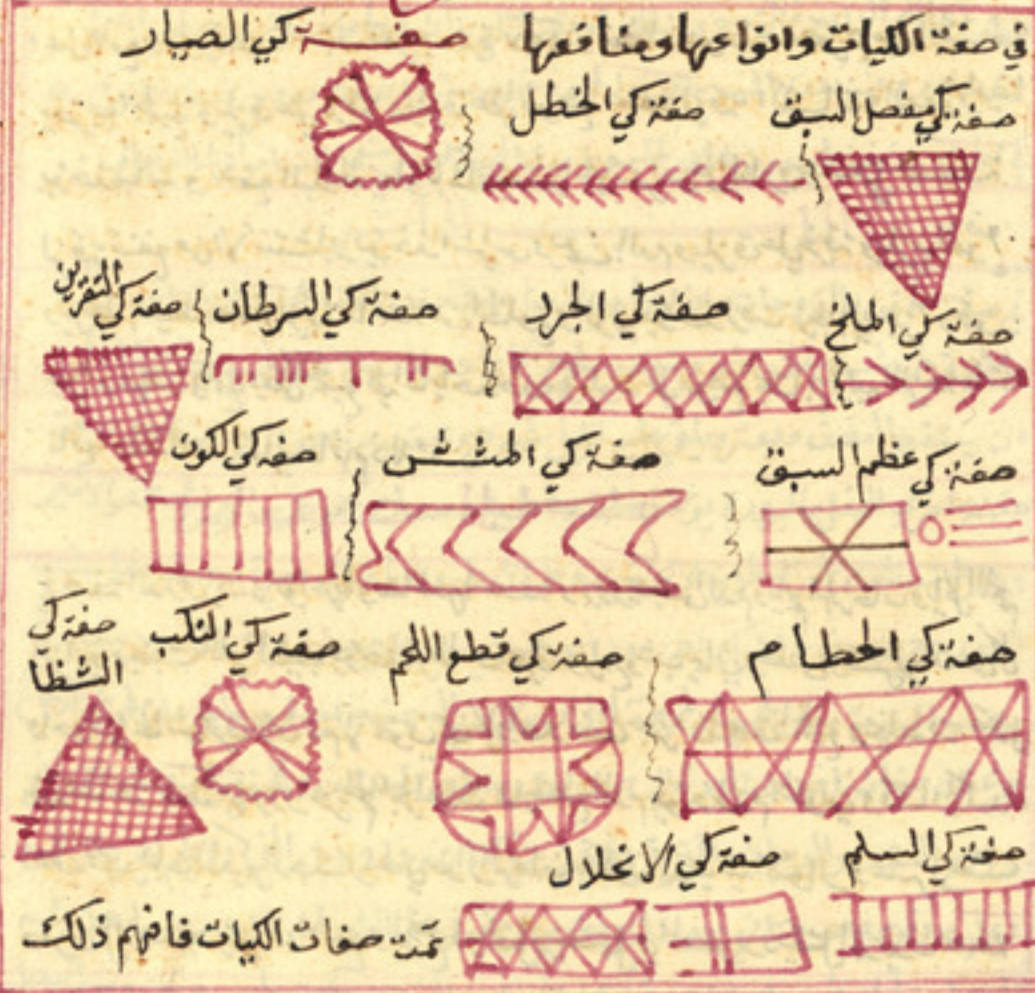 في صفة الكيات وانواعها ومنافعها صفة كي الصيار
صفة كي مفصل السبق صفة كي الخطل
صفة كي الملخ صفة كي الجرد صفة كي السرطان صفة كي
صفة كي عظم السبق صفة كي المشش صفة كي الكوت
صفة كي الحطام صفة كي قطع اللحم صفة كي النكب صفة كي الشظا
صفة كي السلم صفة كي الانخلال
تمت صفات الكيات فافهم ذلك